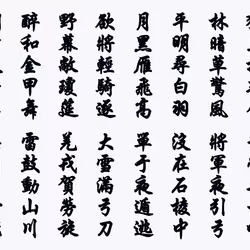 林暗草驚風
將軍夜引弓
平明尋白羽
沒在石棱中
月黑雁飛高
單于夜遁逃
欲將輕騎逐
大雪滿弓刀
野幕敞瓊筵
羌戎賀勞旋
醉和金甲舞
雷鼓動山川